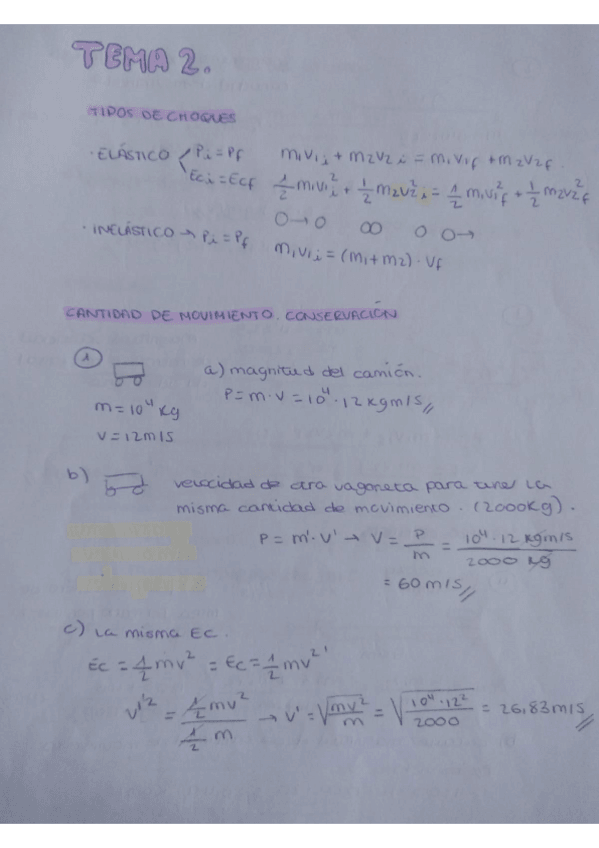 TEMA 2.
TIPOS DE CHOQUES
· ELÁSTICO < Pi = Pf   m₁v₁i + m₂v₂i = m₁v₁f + m₂v₂f.
Eci = Ecf   1/2 m₁v₁i² + 1/2 m₂v₂i² = 1/2 m₁v₁f² + 1/2 m₂v₂f²
· INELÁSTICO → Pi = Pf   m₁v₁i = (m₁+m₂) · vf
CANTIDAD DE MOVIMIENTO. CONSERVACIÓN
1
a) magnitud del camión.
m = 10⁴ Kg   P = m · v = 10⁴ · 12 kgm/s //
v = 12m/s
b) velocidad de otra vagoneta para tener la
misma cantidad de movimiento. (2000Kg).
P = m' · v' → v = P/m = 10⁴ · 12 kgm/s / 2000 kg
= 60 m/s //
c) La misma Ec.
Ec = 1/2 mv² = Ec = 1/2 mv²'
v'² = 1/2 mv² / 1/2 m → v' = √(mv²/m) = √(10⁴ · 12²/2000) = 26,83 m/s //